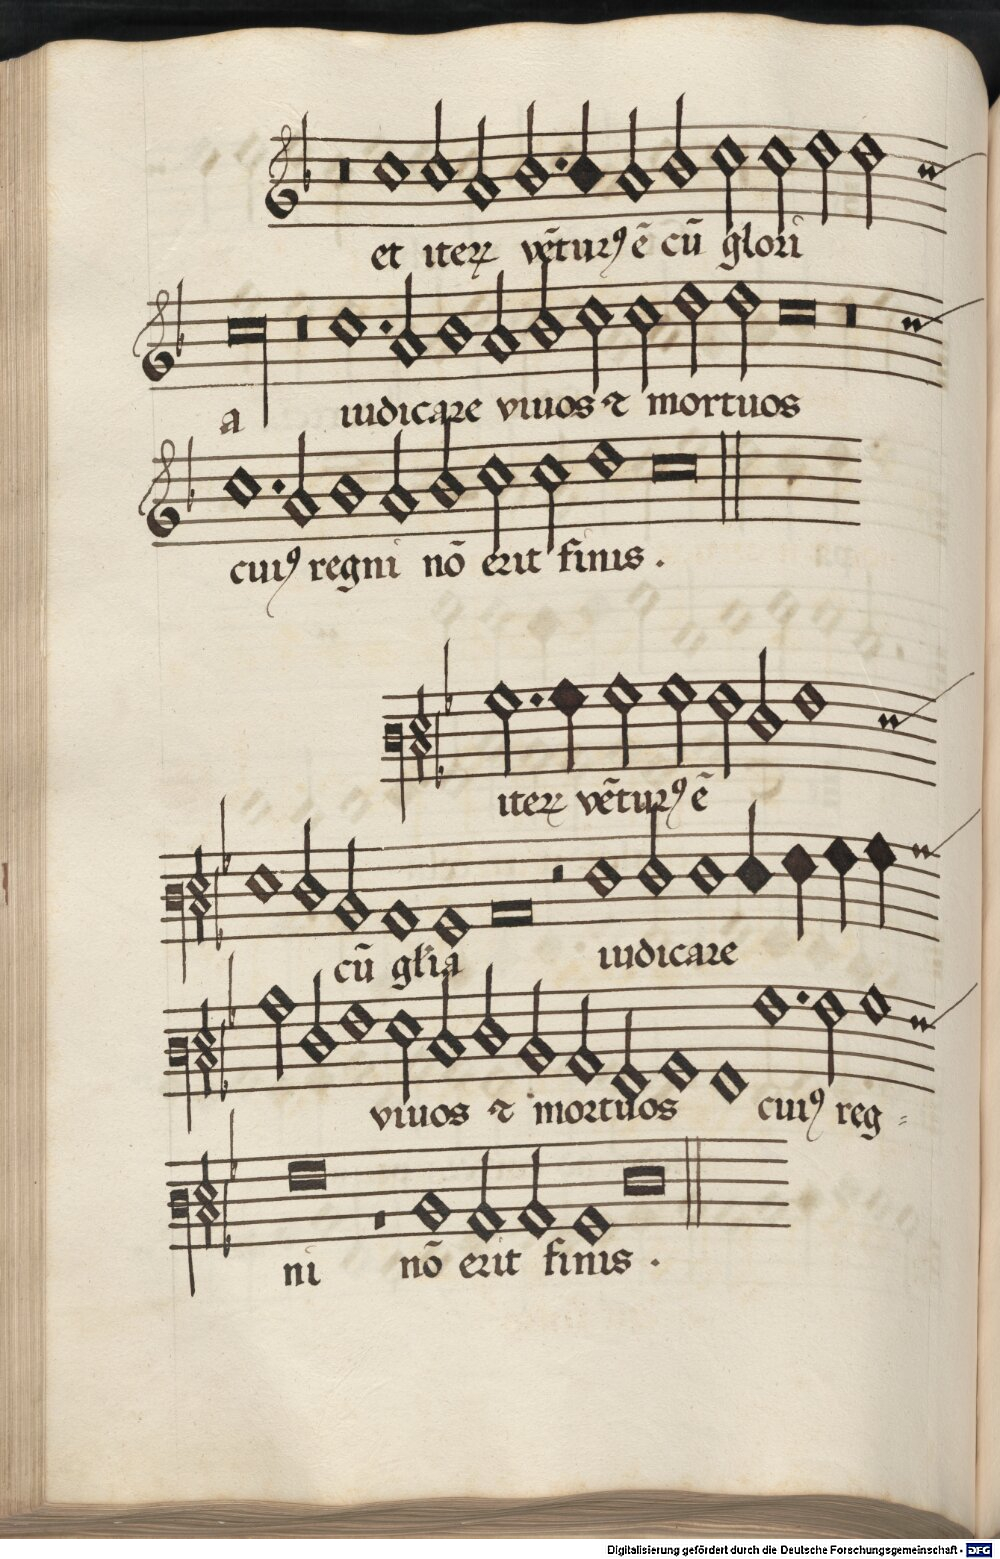 et iteꝝ vẽturꝰ ẽ cũ glori
a iudicare viuos ⁊ mortuos
cuiꝰ regni nõ erit finis .
iteꝝ vẽturꝰ ẽ
cũ glia iudicare
viuos ⁊ mortuos cuiꝰ reg=
ni nõ erit finis .
Digitalisierung gefördert durch die Deutsche Forschungsgemeinschaft - DFG